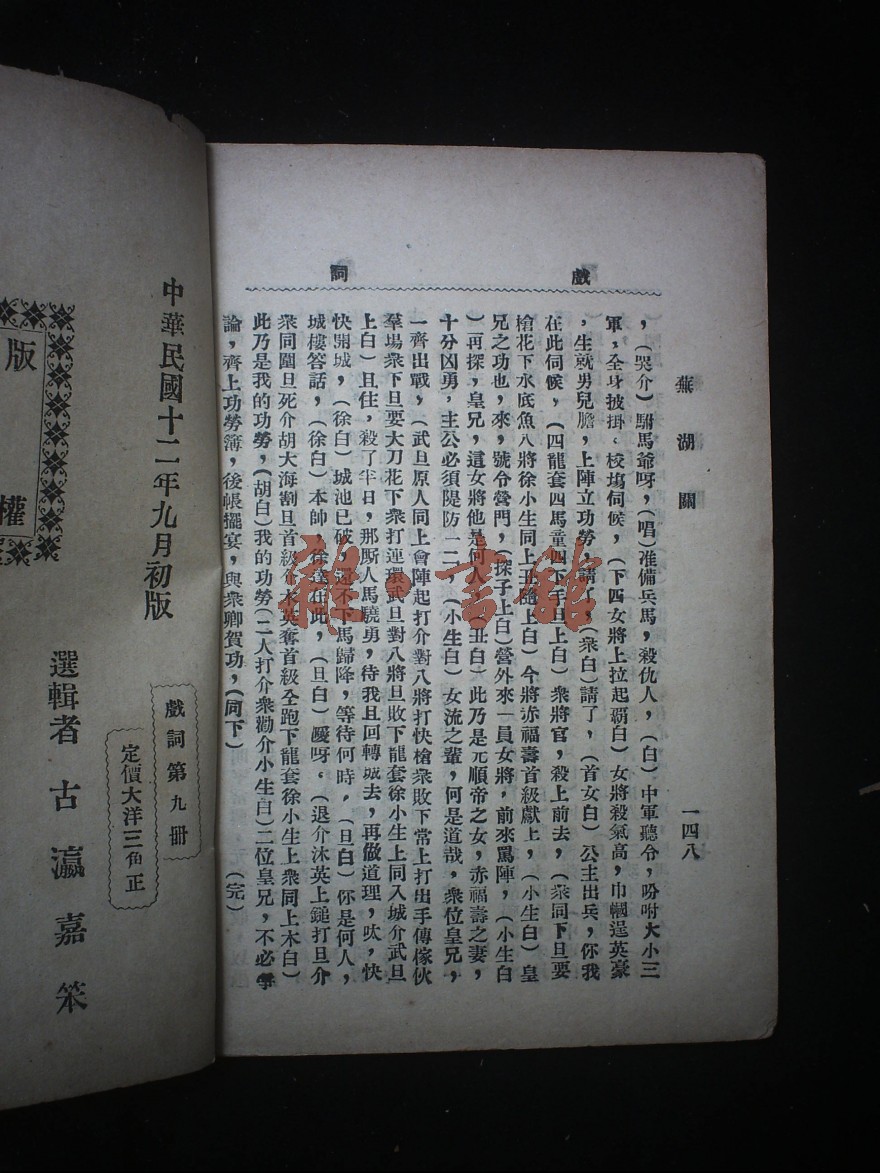 戲詞
蕪湖關
一四八
，(哭介)駙馬爺呀，(唱)准備兵馬，殺仇人，(白)中軍聽令，吩咐大小三
軍，全身披掛、校塲伺候，(下四女將上拉起覇白)女將殺氣高，巾幗逞英豪
，生就男兒膽，上陣立功勞，請了，(衆白)請了，(首女白)公主出兵，你我
在此伺候，(四龍套四馬童四下手旦上白)衆將官，殺上前去，(衆同下旦要
槍花下水底魚八將徐小生同上丑跑上白)今將赤福壽首級獻上，(小生白)皇
兄之功也，來，號令營門，(探子上白)營外來一員女將，前來罵陣，(小生白
)再探，皇兄，這女將他是何人(丑白)此乃是元順帝之女，赤福壽之妻，
十分凶勇，主公必須隄防一二，(小生白)女流之輩，何是道哉，衆位皇兄，
一齊出戰，(武旦原人同上會陣起打介對八將打快槍衆敗下常上打出手傳傢伙
羣塲衆下旦要大刀花下衆打連環武旦對八將旦敗下龍套徐小生上同入城介武旦
上白)且住，殺了半日，那厮人馬驍勇，待我且回轉城去，再做道理，呔，快
快開城，(徐白)城池已破，還不下馬歸降，等待何時，(旦白)你是何人，
城樓答話，(徐白)本帥徐達在此，(旦白)嗄呀，(退介沐英上鎚打旦介
衆同圍旦死介胡大海割旦首級介木英奪首級仝跑下龍套徐小生上衆同上木白)
此乃是我的功勞，(胡白)我的功勞(二人打介衆勸介小生白)二位皇兄，不必爭
論，齊上功勞簿，後帳擺宴，與衆卿賀功，(同下)(完)
中華民國十二年九月初版
戲詞第九冊
定價大洋三角正
選輯者 古瀛嘉笨
版權
雜·書館